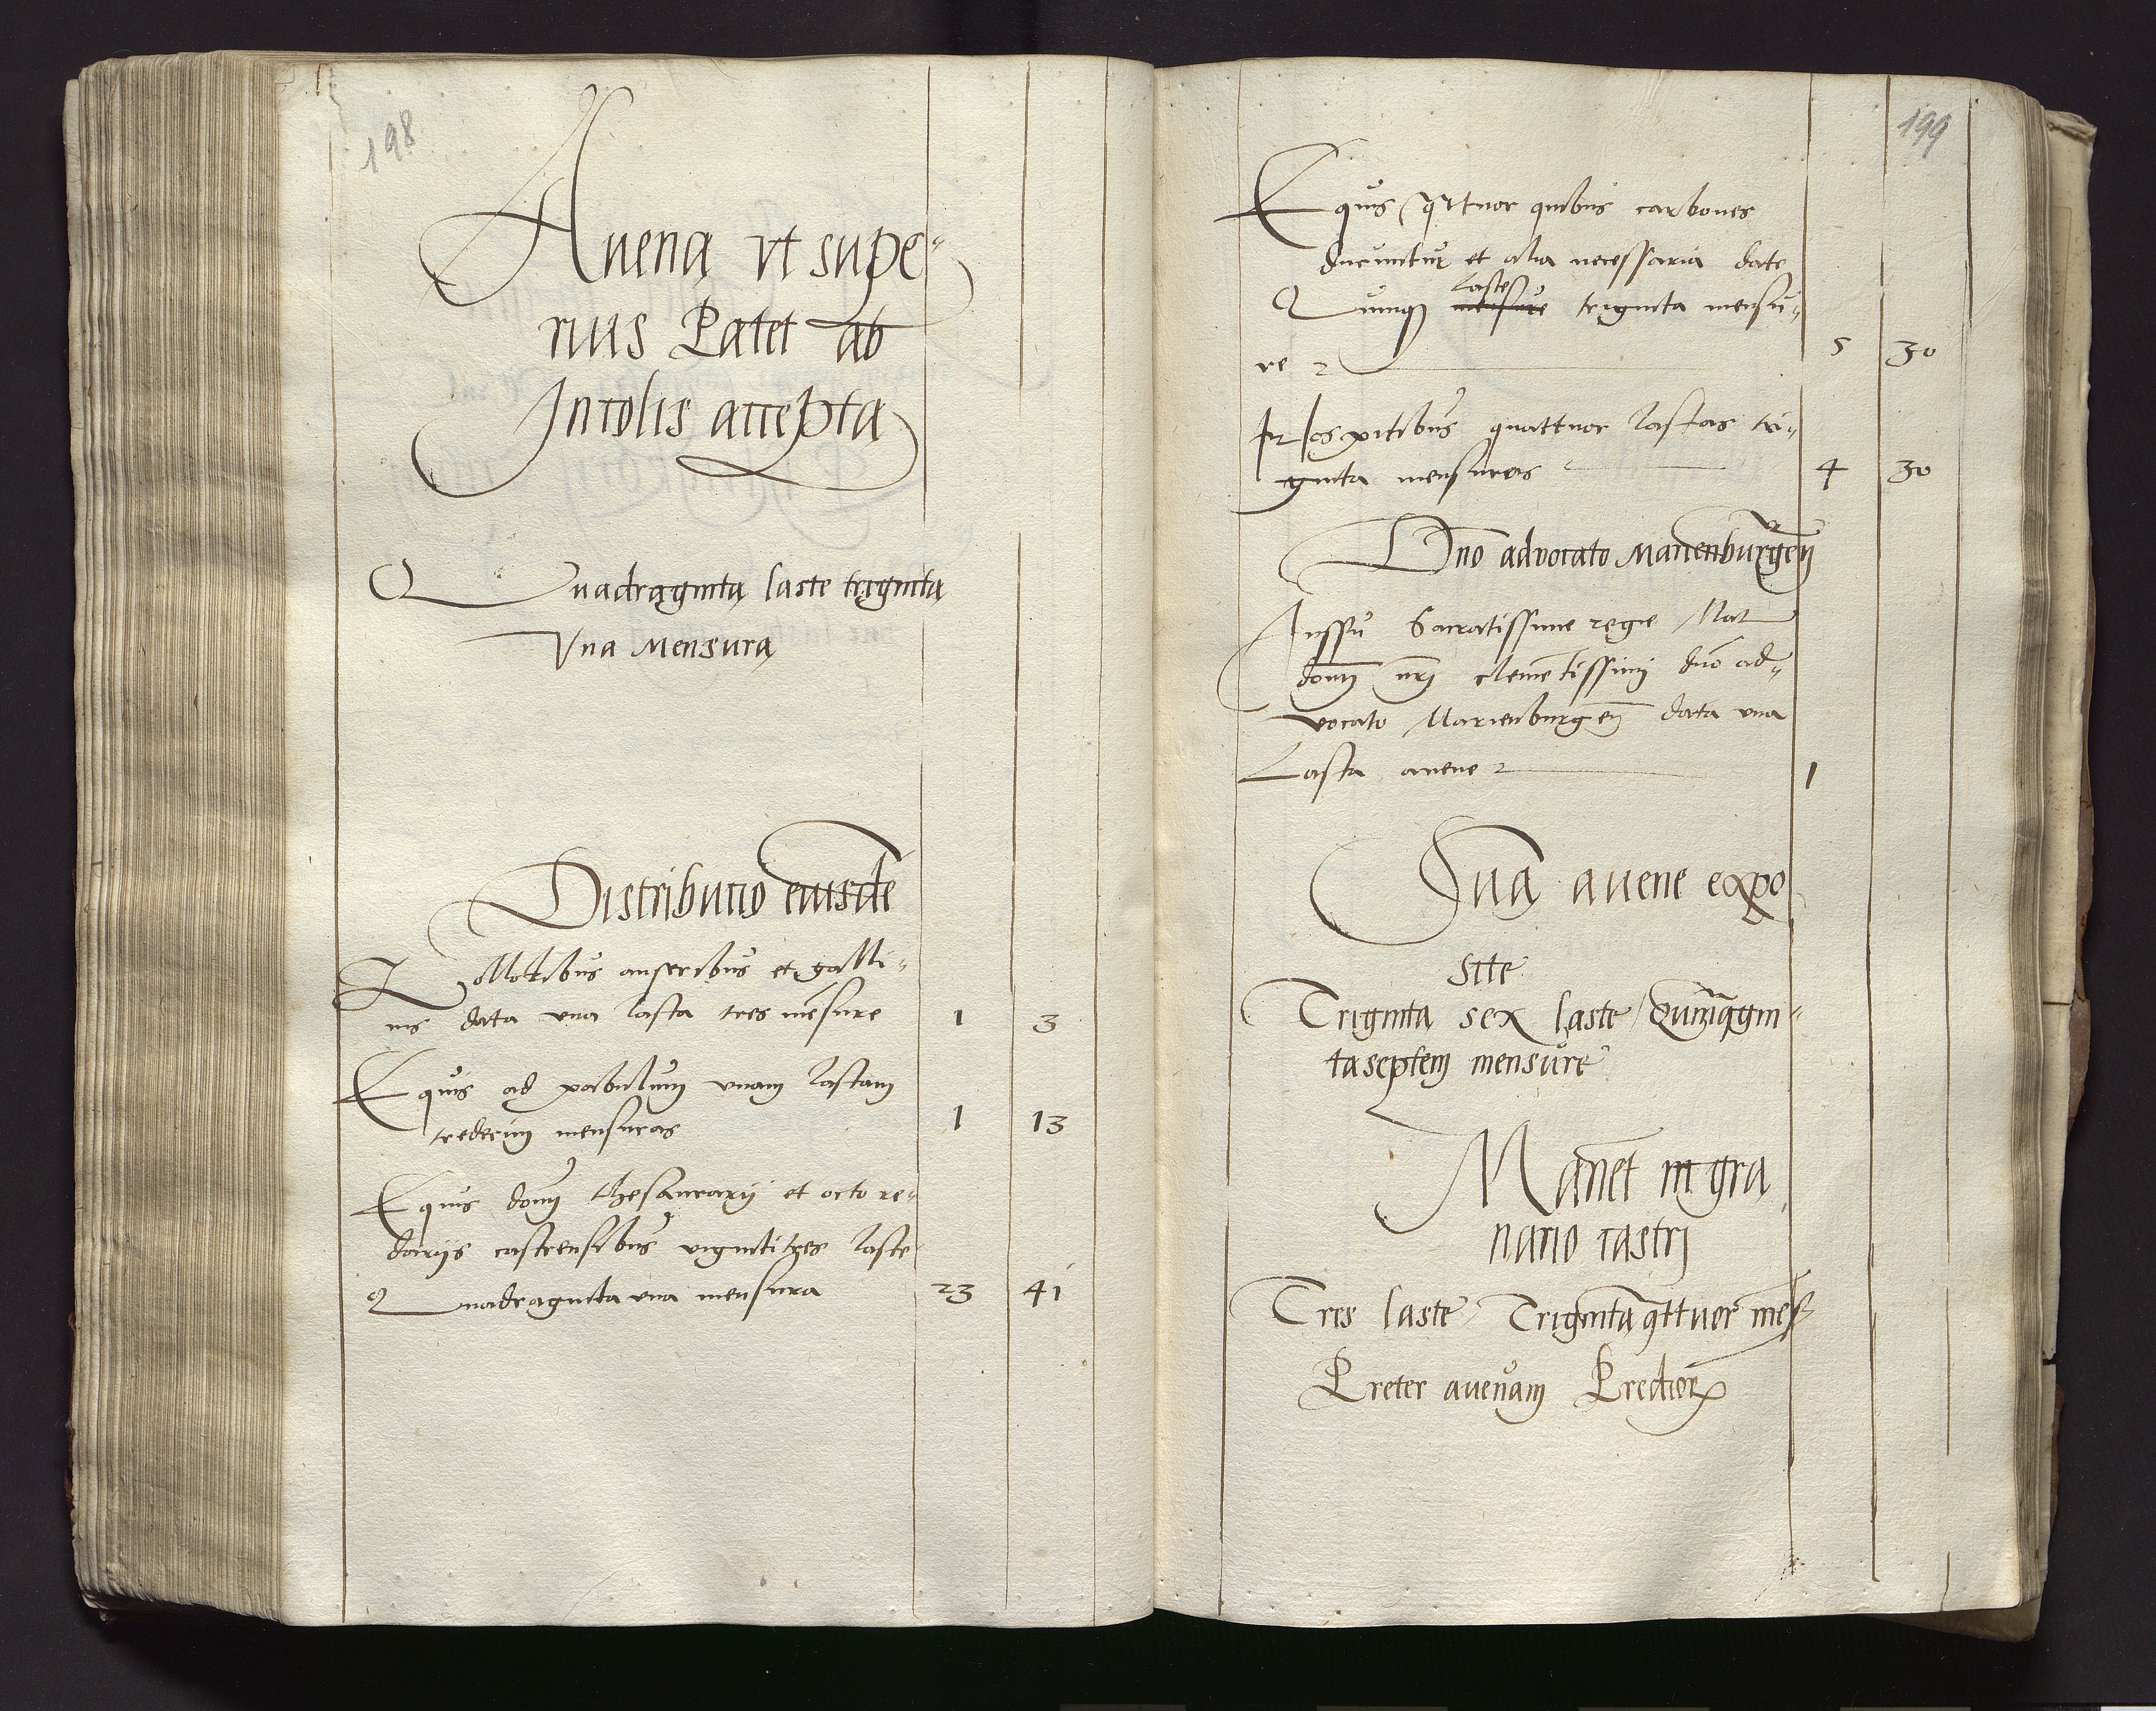 198
Auena vt supe-
rius Patet ab
Incolis accepta
Quadraginta laste triginta
Vna Mensura
Distributio eiusdē
Olloribus anseribus et galli-
nis data vna lasta tres mēsure 1 3
Equis ad pabulum vnam lastam
tredecim mensuras 1 13
Equis domī thesaurarij et octo re-
darijs castrensibus viginti tres laste
Quadraginta vna mensura 23 41
199
Equis qttuor quibus carbones
ducuntur et alia necessaria date
Quinqȝ mensure laste triginta mensu-
re 5 30
Hospitibus quattuor lastas tri-
ginta mensuras 4 30
Dno advocato Marienburgeñ
Iussu Sacratissime regie Mat
domī nrī clemētissimi dno ad-
vocato Marienburgeñ data vna
Lasta avene 1
Sūa avene expo
site
Triginta sex laste Quinqagin-
taseptem mensure
Manet in gra
nario castri
Tres laste Triginta qttuor mēs
Preter avenam Predior